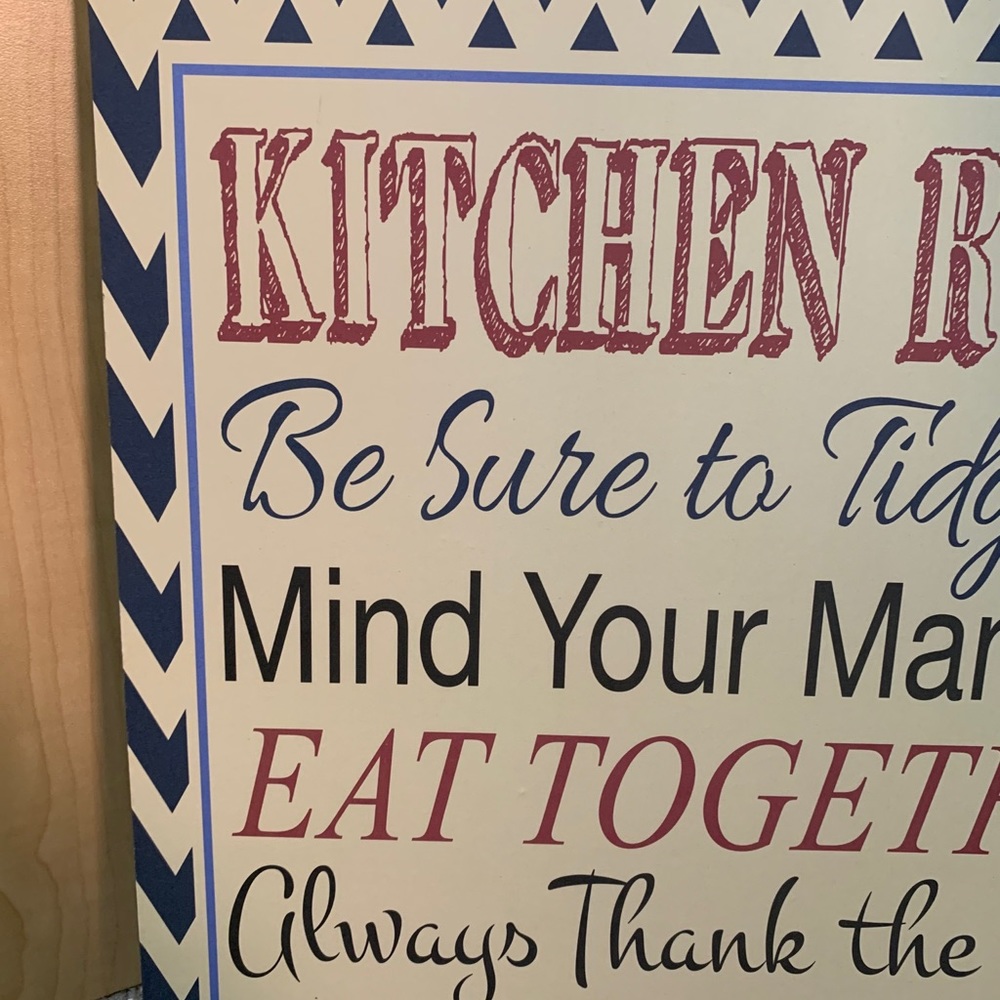 KITCHEN R
Be Sure to Tidy
Mind Your Man
EAT TOGETH
Always Thank the